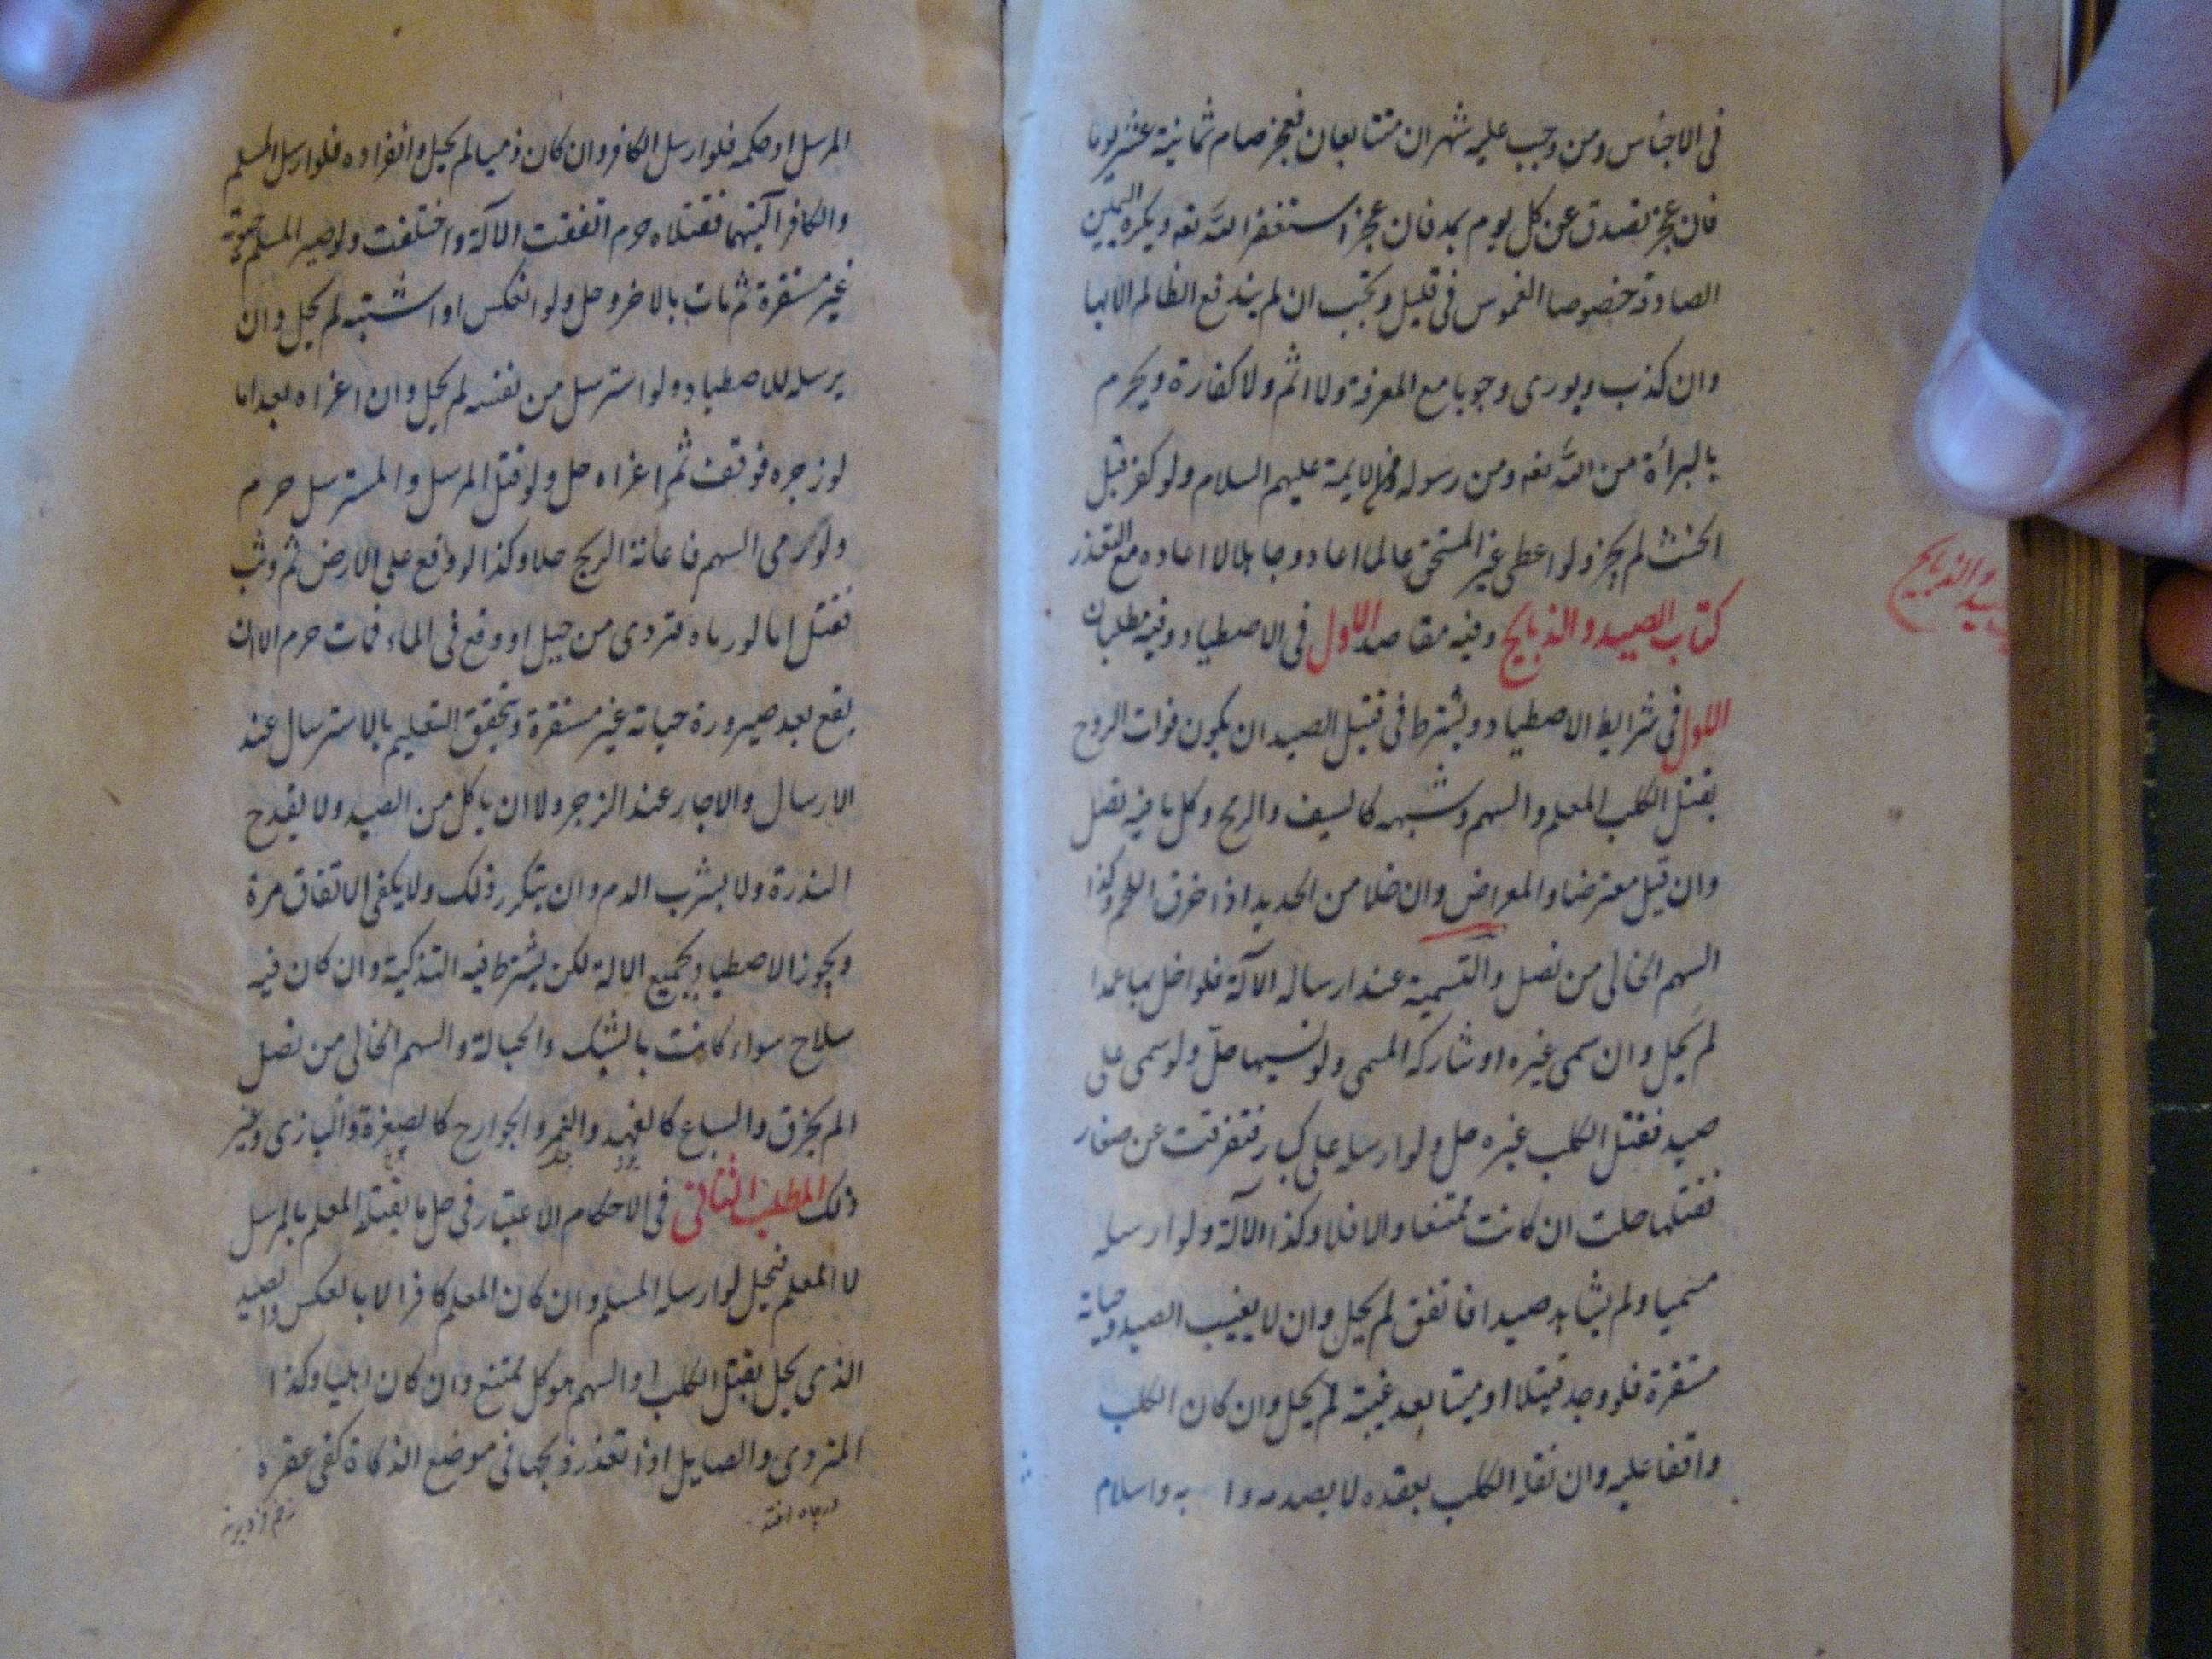 فى الاجناس ومن وجب عليه شهران متتابعان فعجز صام ثمانية عشر يوما
فان عجز تصدق عن كل يوم بمد فان عجز استغفر الله تعه ويكره اليمين
الصادقة خصوصا الغموس فى قليل وتجب ان لم يندفع الظالم الا بها
وان كذب ويورى وجوبا مع المعرفة ولا اثم ولا كفارة ويحرم
بالبرأة من الله تعه ومن رسوله والايمة عليهم السلام ولو كفر قبل
الحنث لم يجز ولو اعطى غير المستحق عالما اعاد وجاهلا لا اعاده مع التعذر
كتاب الصيد والذبايح وفيه مقاصد الاول فى الاصطياد وفيه مطلبان
الاول فى شرايط الاصطياد ويشترط فى قتيل الصيد ان يكون فوات الروح
بقتل الكلب المعلم والسهم وشبهه كالسيف والرمح وكل ما فيه نصل
وان قتل معترضا والمعراض وان خلا من الحديد اذا خرق اللحم وكذا
السهم الخالى من نصل والتسمية عند ارساله الآلة فلو اخل بها عمدا
لم يحل وان سمى غيره او شاركه المسمى ولو نسيها حلّ ولو سمى على
صيد فقتل الكلب غيره حل ولو ارسله على كبار فتفرقت عن صغار
فقتلها حلت ان كانت ممتنعا والا فلا وكذا الآلة ولو ارسله
مسميا ولم يشاهد صيدا فاتفق لم يحل وان لا يغيب الصيد وحياته
مستقرة فلو وجد قتيلا او ميتا بعد غيبته لم يحل وان كان الكلب
واقفا عليه وان نقل الكلب بعقده لا بصدمه واسلام
والذبايح
المرسل او حكمه فلو ارسل الكافر وان كان ذميا لم يحل وانفراده فلو ارسل المسلم
والكافر آلتيهما فقتلاه حرم اتفقت الآلة واختلفت ولو صير المسلم حيوته
غير مستقرة ثم مات بالاخر وحل ولو انعكس او اشتبه لم يحل وان
يرسله للاصطياد ولو استرسل من نفسه لم يحل وان اغراه بعد اما
لو زجره فوقف ثم اغراه حل ولو قتل المرسل والمسترسل حرم
ولو رمى السهم فاعانة الريح حلا وكذا لو وقع على الارض ثم وثب
فقتل اما لو رماه فتردى من جبل او وقع فى الماء فمات حرم الا ان
يقع بعد صيرورة حياته غير مستقرة وتحقق التعليم بالاسترسال عند
الارسال والانزجار عند الزجر ولا ان ياكل من الصيد ولا يقدح
الندرة ولا بشرب الدم وان يتكرر ذلك ولا يكفى الاتفاق مرة
ويجوز الاصطياد بجميع الالة لكن يشترط فيه التذكية وان كان فيه
سلاح سواء كانت بالشبك والحبالة والسهم الخالى من نصل
الم يخرق والسباع كالفهد والنمر والجوارح كالصقرة والبازى وغير
ذلك المطلب الثانى فى الاحكام الاعتبار فى حل ما يقتله المعلم بالمرسل
لا المعلم فيحل لو ارسله المسلم وان كان المعلم كافرا لا بالعكس والصيد
الذى يحل بقتل الكلب او السهم هو كل ممتنع وان كان اهليا وكذا
المتردى والصايل اذا تعذر ذبحها فى موضع الذكاة كفى عقره